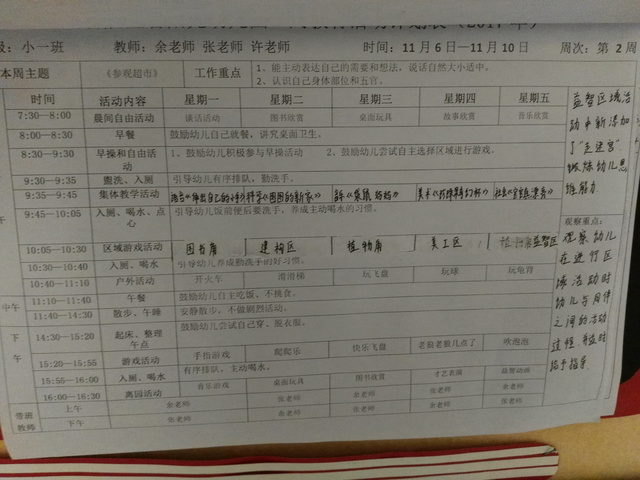 级：小一班 教师：余老师 张老师 许老师 时间：11月6日—11月10日 周次：第2周
本周主题 《参观超市》 工作重点 1、能主动表达自己的需要和想法，说话自然大小适中。
2、认识自己身体部位和五官。
时间 活动内容 星期一 星期二 星期三 星期四 星期五
7:30—8:00 晨间自由活动 谈话活动 图书欣赏 桌面玩具 故事欣赏 音乐欣赏
8:00—8:30 早餐 鼓励幼儿自己就餐，讲究桌面卫生。
8:30—9:30 早操和自由活动 1、鼓励幼儿积极参与早操活动 2、鼓励幼儿尝试自主选择区域进行游戏。
9:30—9:35 盥洗、入厕 引导幼儿有序排队，勤洗手。
9:35—9:45 集体教学活动
9:45—10:05 入厕、喝水、点心 引导幼儿饭前便后要洗手，养成主动喝水的习惯。
10:05—10:30 区域游戏活动 图书角 建构区 植物角 美工区 益智区
10:30—10:40 入厕、喝水 引导幼儿养成勤洗手的好习惯。
10:40—11:10 户外活动 开火车 滑滑梯 玩飞盘 玩球 玩龟背
中午 11:10—11:40 午餐 鼓励幼儿自主吃饭、不挑食。
11:40—14:30 散步、午睡 安静散步，不做剧烈活动。
下午 14:30—15:20 起床、整理 午点 鼓励幼儿尝试自己穿、脱衣服。
15:20—15:55 游戏活动 手指游戏 爬爬乐 快乐飞盘 老狼老狼几点了 吹泡泡
15:55—16:00 入厕、喝水 有序排队，主动喝水。
16:00—16:30 离园活动 音乐游戏 桌面玩具 图书欣赏 才艺表演 益智动画
带班教师 上午 余老师 张老师 张老师 余老师 余老师
下午 张老师 余老师 余老师 张老师 张老师
益智区域活
动中新添加
了“走迷宫”
锻炼幼儿思
维能力
观察重点：
观察幼儿
在进行区
域活动时
幼儿与同伴
之间的活动
过程，并及时
给予指导